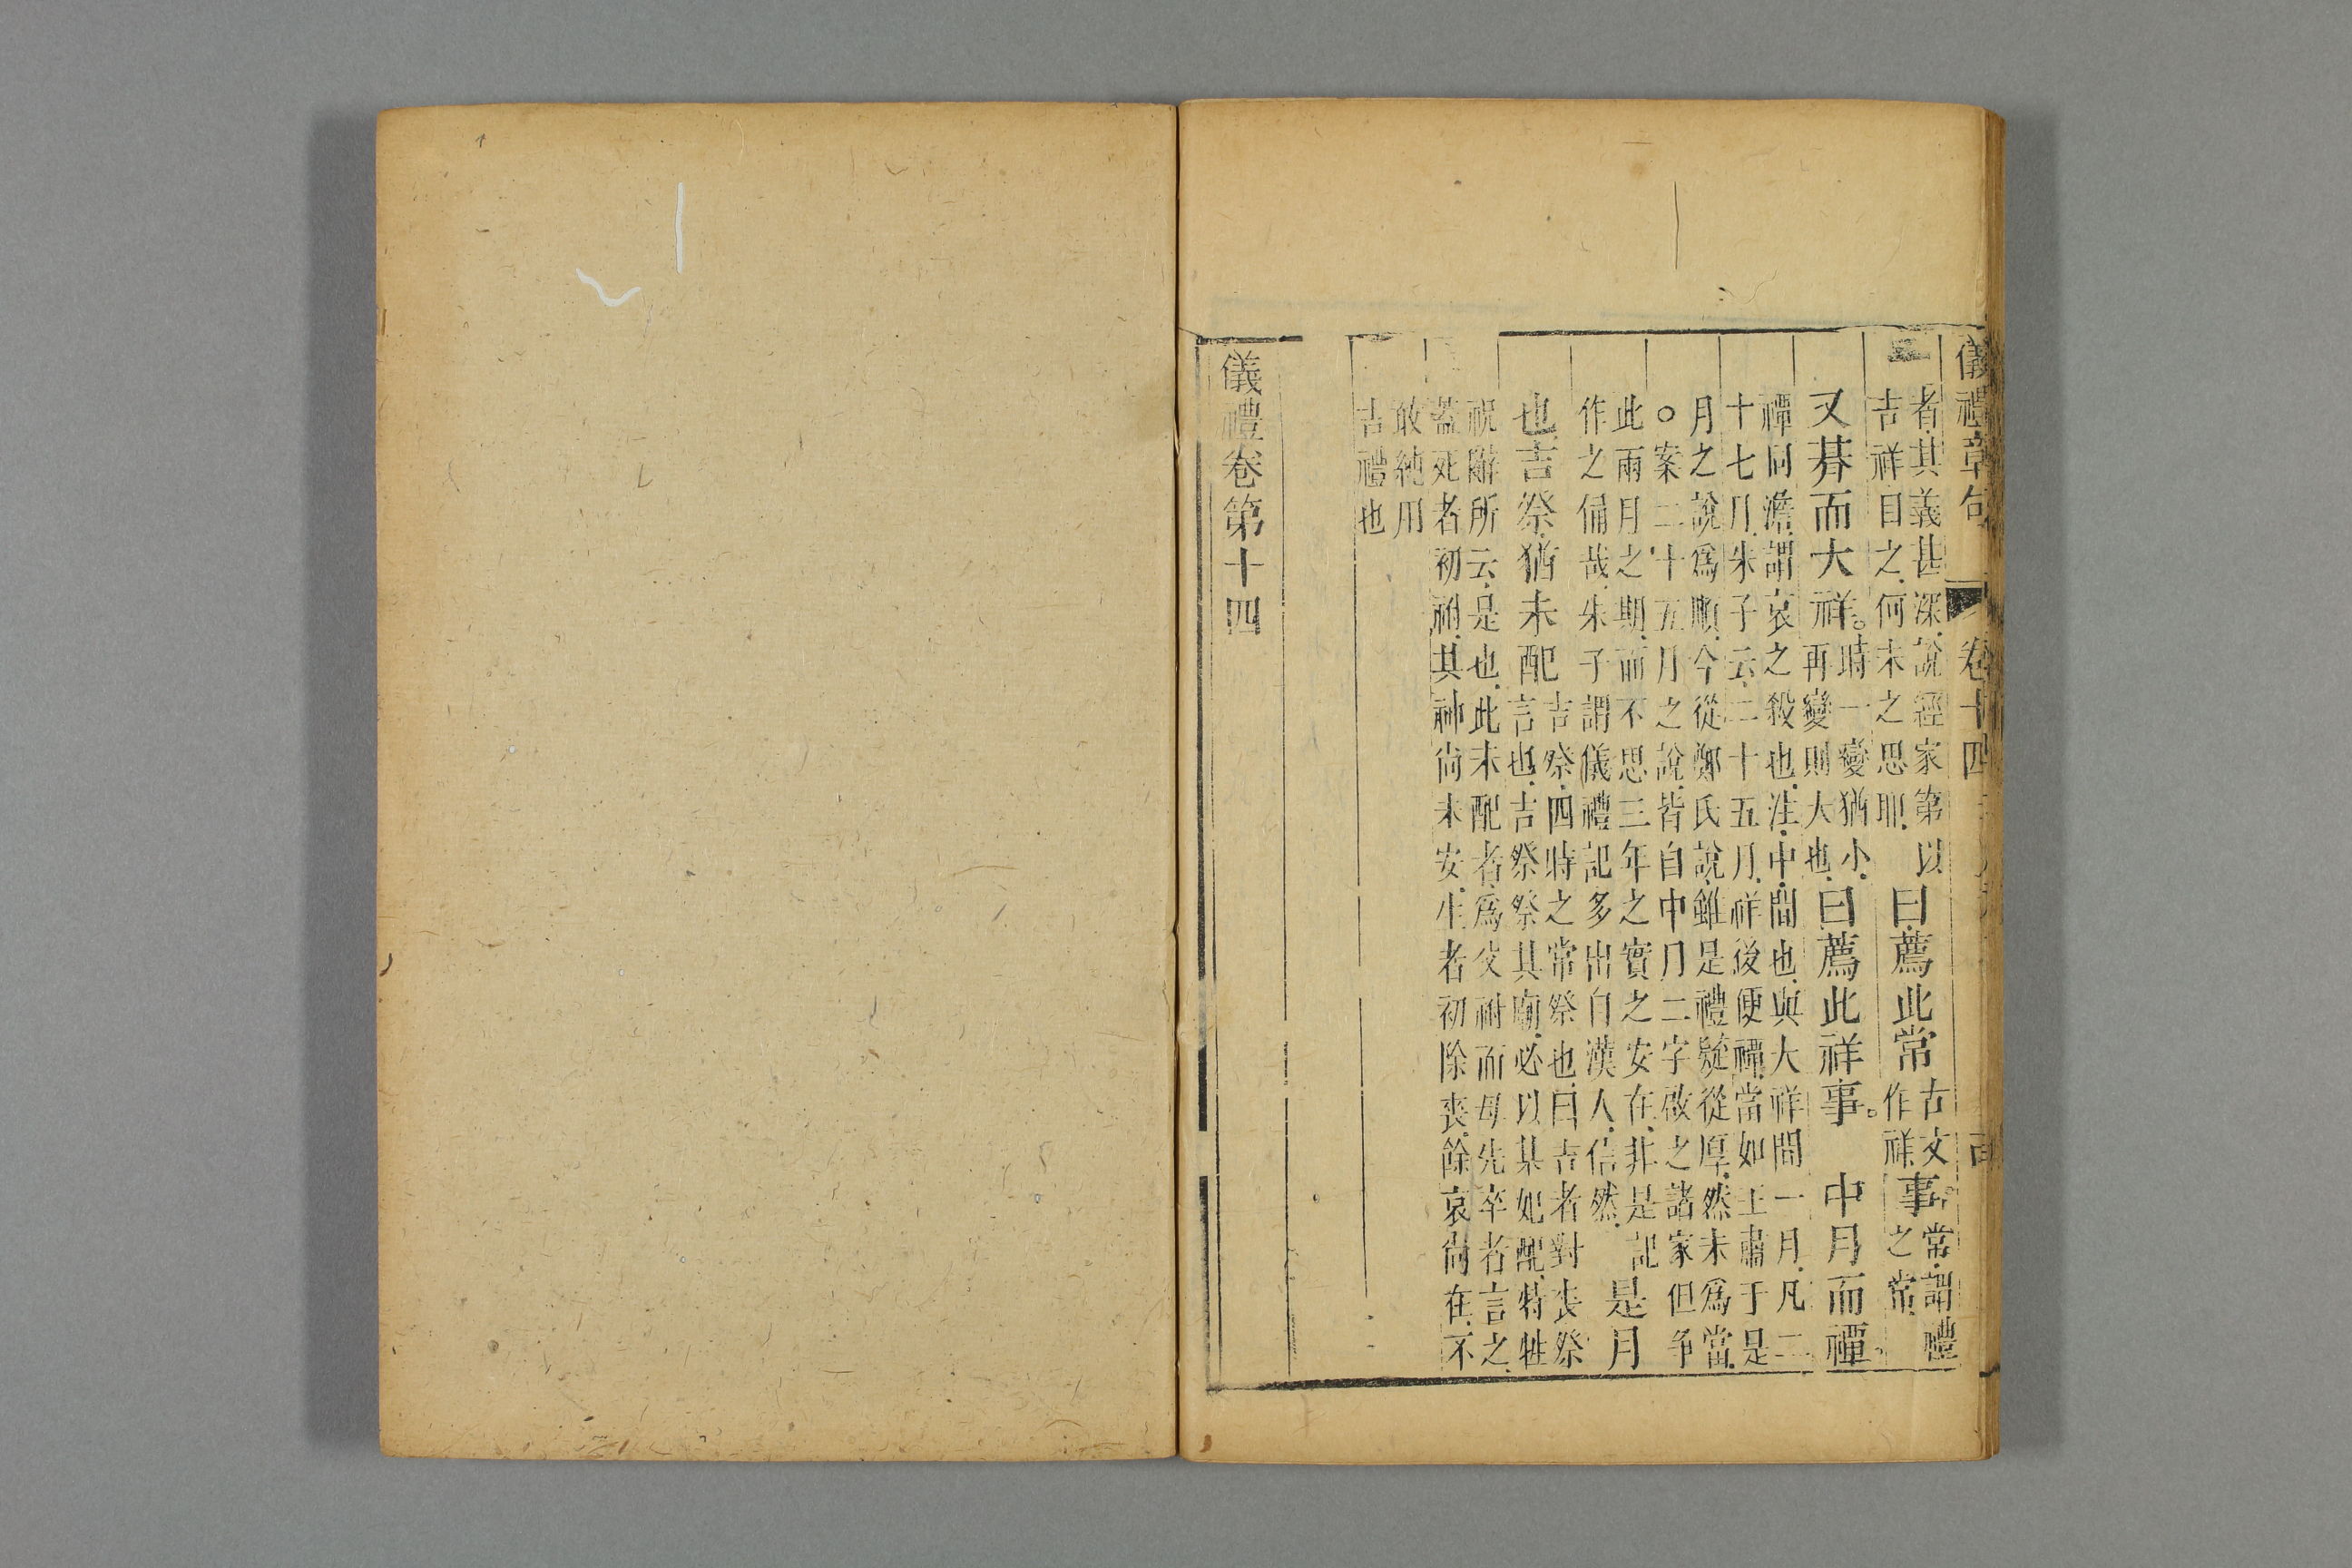 儀禮章句 卷十四
者其義甚深說經家第以
吉祥目之何未之思耶
曰薦此常
古文
作祥
事
常謂禮
之常
又朞而大祥。
時一變猶小
再變則大也
曰薦此祥事。 中月而禫
禫同澹謂哀之殺也注中間也與大祥間一月凡二
十七月朱子云二十五月祥後便禫當如王肅于是
月之說爲順今從鄭氏說雖是禮疑從厚然未爲當
○案二十五月之說皆自中月二字啟之諸家但爭
此兩月之期而不思三年之實之安在非是記
作之哉朱子謂儀禮記多出自漢人信然
是月
也吉祭猶未配
吉祭四時之常祭也曰吉者對喪祭
言也吉祭祭其廟必以某妃配特牲
祝辭所云是也此未配者爲父祔而母先卒者言之
蓋死者初祔其神尚未安生者初除喪餘哀尚在不
敢純用
吉禮也
儀禮卷第十四